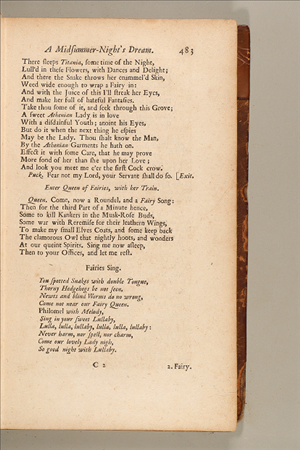 A Midsummer-Night's Dream. 483
There sleeps Titania, some time of the Night,
Lull'd in these Flowers, with Dances and Delight;
And there the Snake throws her enammel'd Skin,
Weed wide enough to wrap a Fairy in:
And with the Juice of this I'll streak her Eyes,
And make her full of hateful Fantasies.
Take thou some of it, and seek through this Grove;
A sweet Athenian Lady is in love
With a disdainful Youth; anoint his Eyes,
But do it when the next thing he espies
May be the Lady. Thou shalt know the Man,
By the Athenian Garments he hath on.
Effect it with some Care, that he may prove
More fond of her than she upon her Love;
And look you meet me e'er the first Cock crow.
Puck. Fear not my Lord, your Servant shall do so. [Exit.
Enter Queen of Fairies, with her Train.
Queen. Come, now a Roundel, and a Fairy Song:
Then for the third Part of a Minute hence,
Some to kill Kankers in the Musk-Rose Buds,
Some war with Reremise for their leathern Wings,
To make my small Elves Coats, and some keep back
The clamorous Owl that nightly hoots, and wonders
At our queint Spirits. Sing me now asleep,
Then to your Offices, and let me rest.
Fairies Sing.
You spotted Snakes with double Tongue,
Thorny Hedgehogs be not seen,
Newts and blind Worms do no wrong,
Come not near our Fairy Queen.
Philomel with Melody,
Sing in your sweet Lullaby,
Lulla, lulla, lullaby, lulla, lulla, lullaby:
Never harm, nor spell, nor charm,
Come our lovely Lady nigh,
So good night with Lullaby.
C 2 2. Fairy.